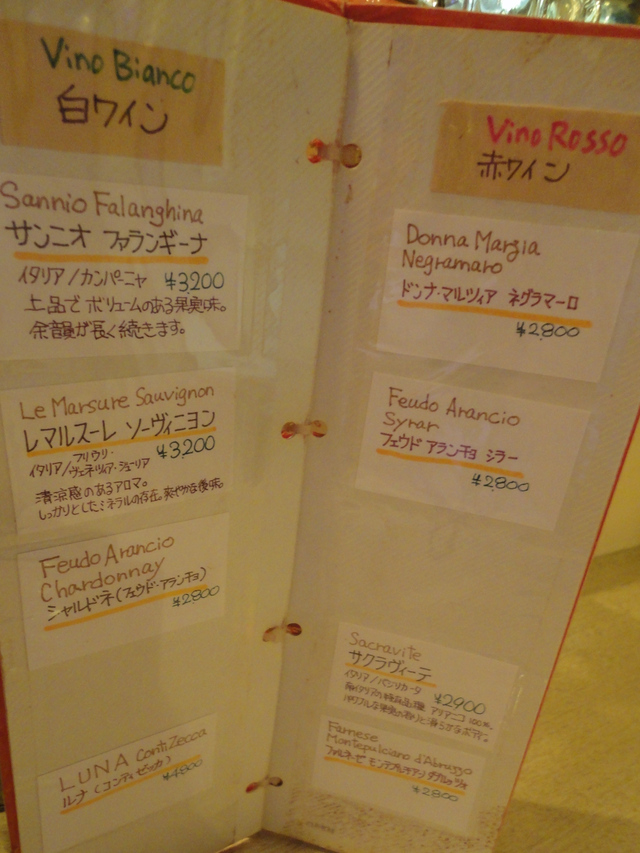 Vino Bianco
白ワイン
Sannio Falanghina
サンニオ ファランギーナ
イタリア/カンパーニャ ¥3,200
上品でボリュームのある果実味。
余韻が長く続きます。
Le Marsure Sauvignon
レマルスーレ ソーヴィニヨン
フリウリ・
イタリア/ヴェネツィア・ジューリア ¥3,200
清涼感のあるアロマ。
しっかりとしたミネラルの存在。爽やかな後味。
Feudo Arancio
Chardonnay
シャルドネ(フェウド・アランチョ)
¥2,800
LUNA Conti Zecca
ルナ(コンティゼッカ)
¥4,800
Vino Rosso
赤ワイン
Donna Marzia
Negramaro
ドンナ・マルツィア ネグラマーロ
¥2,800
Feudo Arancio
Syrar
フェウド アランチョ シラー
¥2,800
Sacravite
サクラヴィーテ
イタリア/バジリカータ ¥2900
南イタリアの特産品種 アリアニコ 100%.
パワフルな果実の香りと滑らかなボディ。
Farnese
Montepulciano d'Abruzzo
ファルネーゼ モンテプルチアーノ ダブルッツォ
¥2,800